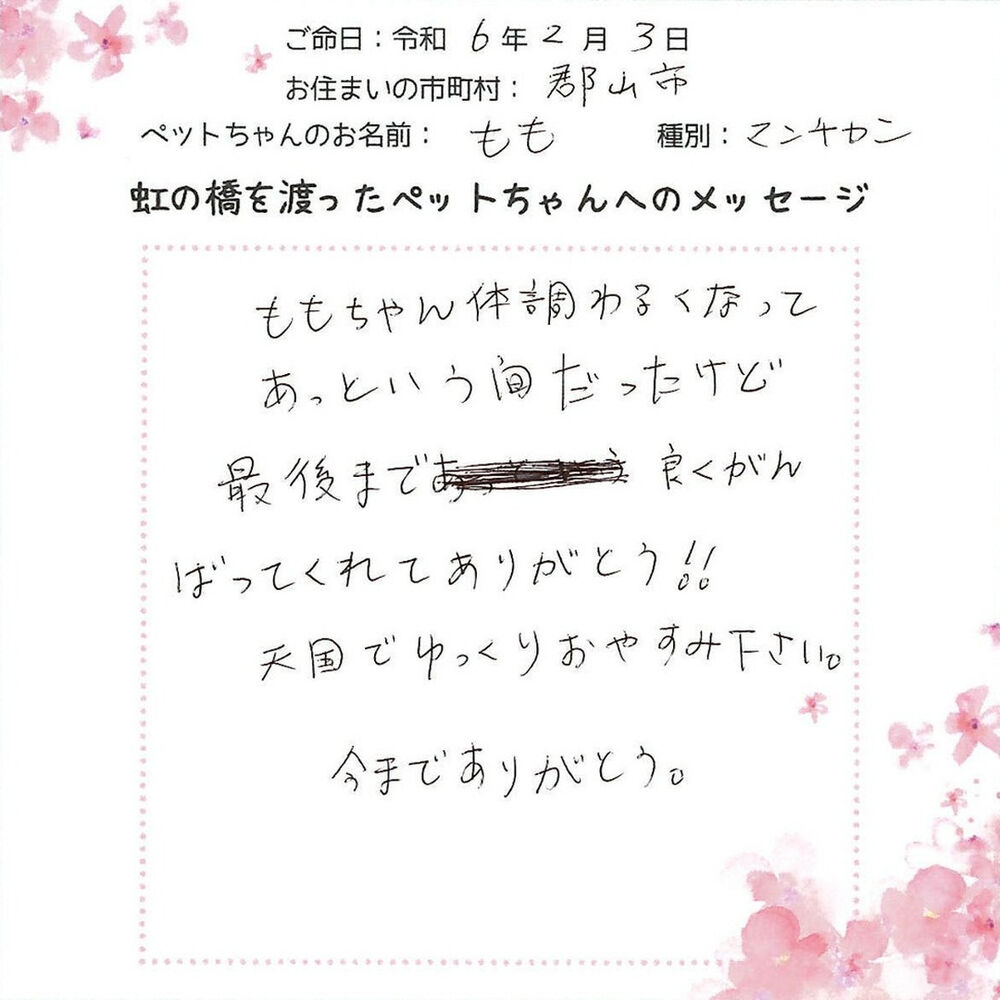 ご命日：令和 6年 2月 3日
お住まいの市町村： 郡山市
ペットちゃんのお名前： もも 種別：マンチカン
虹の橋を渡ったペットちゃんへのメッセージ
ももちゃん体調わるくなって
あっという間だったけど
最後まで 良くがん
ばってくれてありがとう!!
天国でゆっくりおやすみ下さい。
今までありがとう。